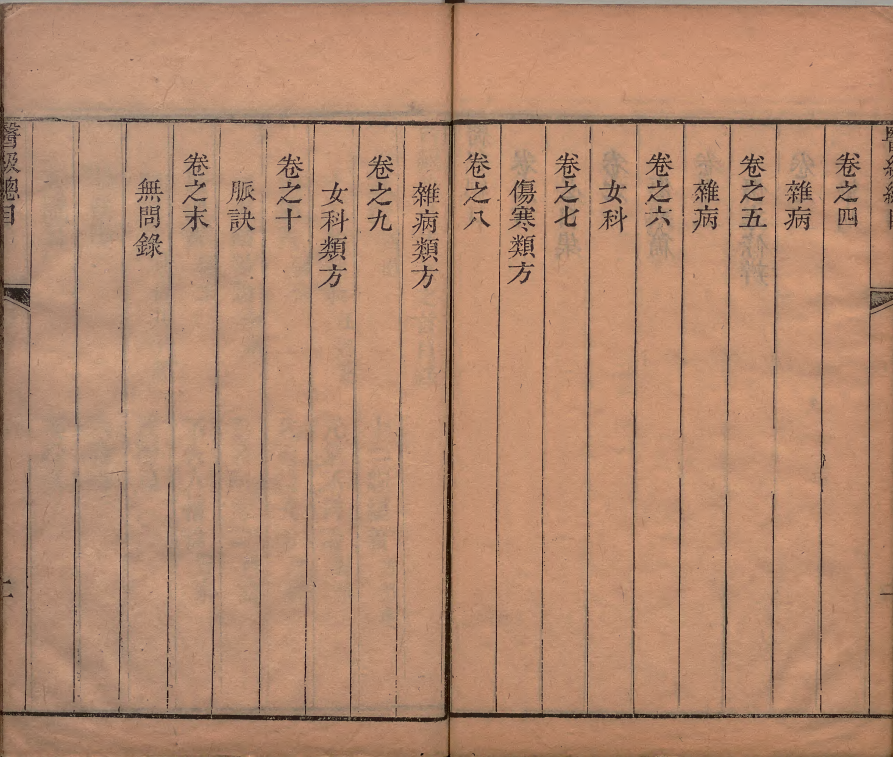 卷之四
雜病
卷之五
雜病
卷之六
女科
卷之七
傷寒類方
卷之八
雜病類方
卷之九
女科類方
卷之十
脈訣
卷之末
無問錄
醫級總目
二